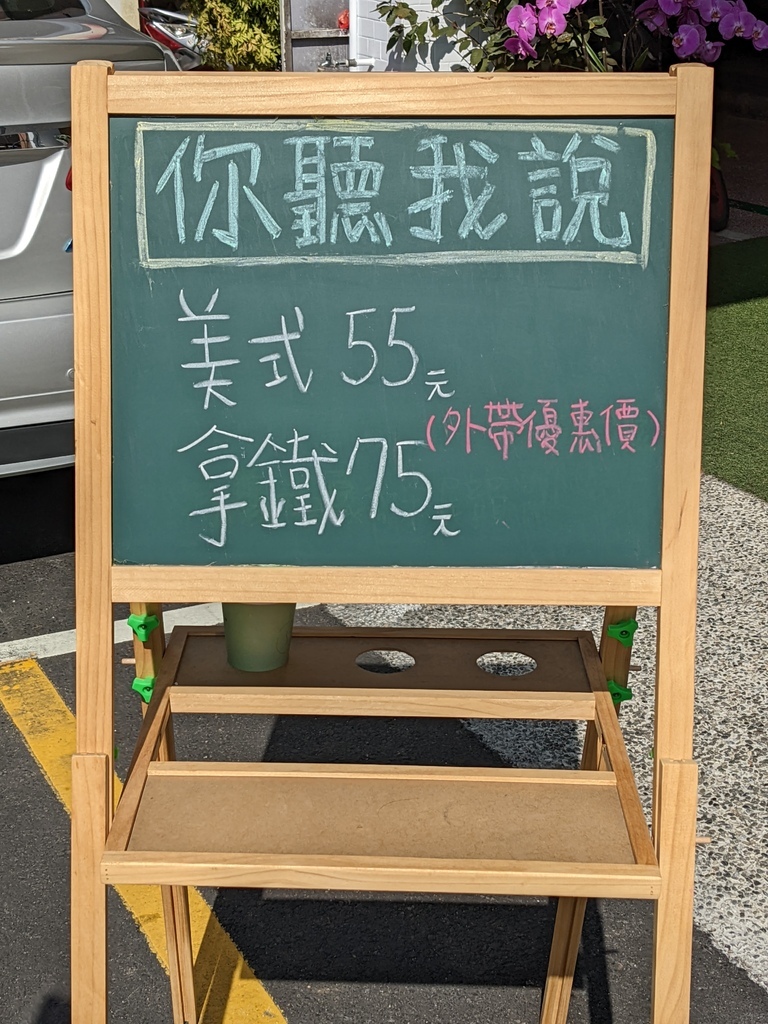 你聽我說
美式 55元
(外帶優惠價)
拿鐵 75元